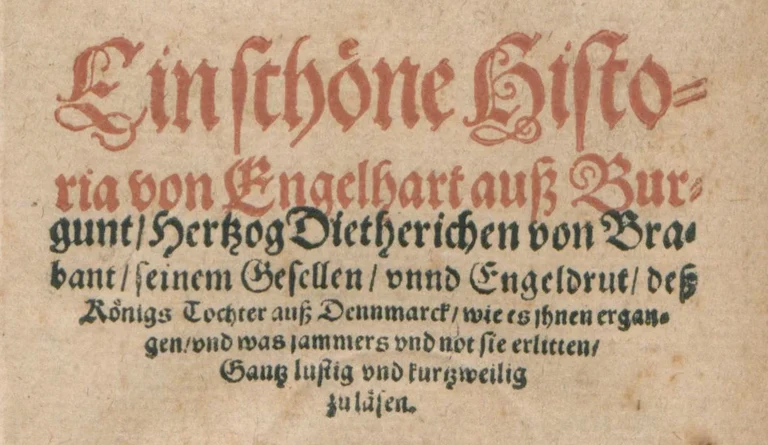 Ein schöne Histo-
ria von Engelhart auß Bur-
gunt/ Hertzog Dietherichen von Bra-
bant/ seinem Gesellen/ vnnd Engeldrut/ deß
Königs Tochter auß Dennmarck/ wie es jhnen ergan-
gen/ vnd was jammers vnd not sie erlitten/
Gantz lustig vnd kurtzweilig
zu läsen.